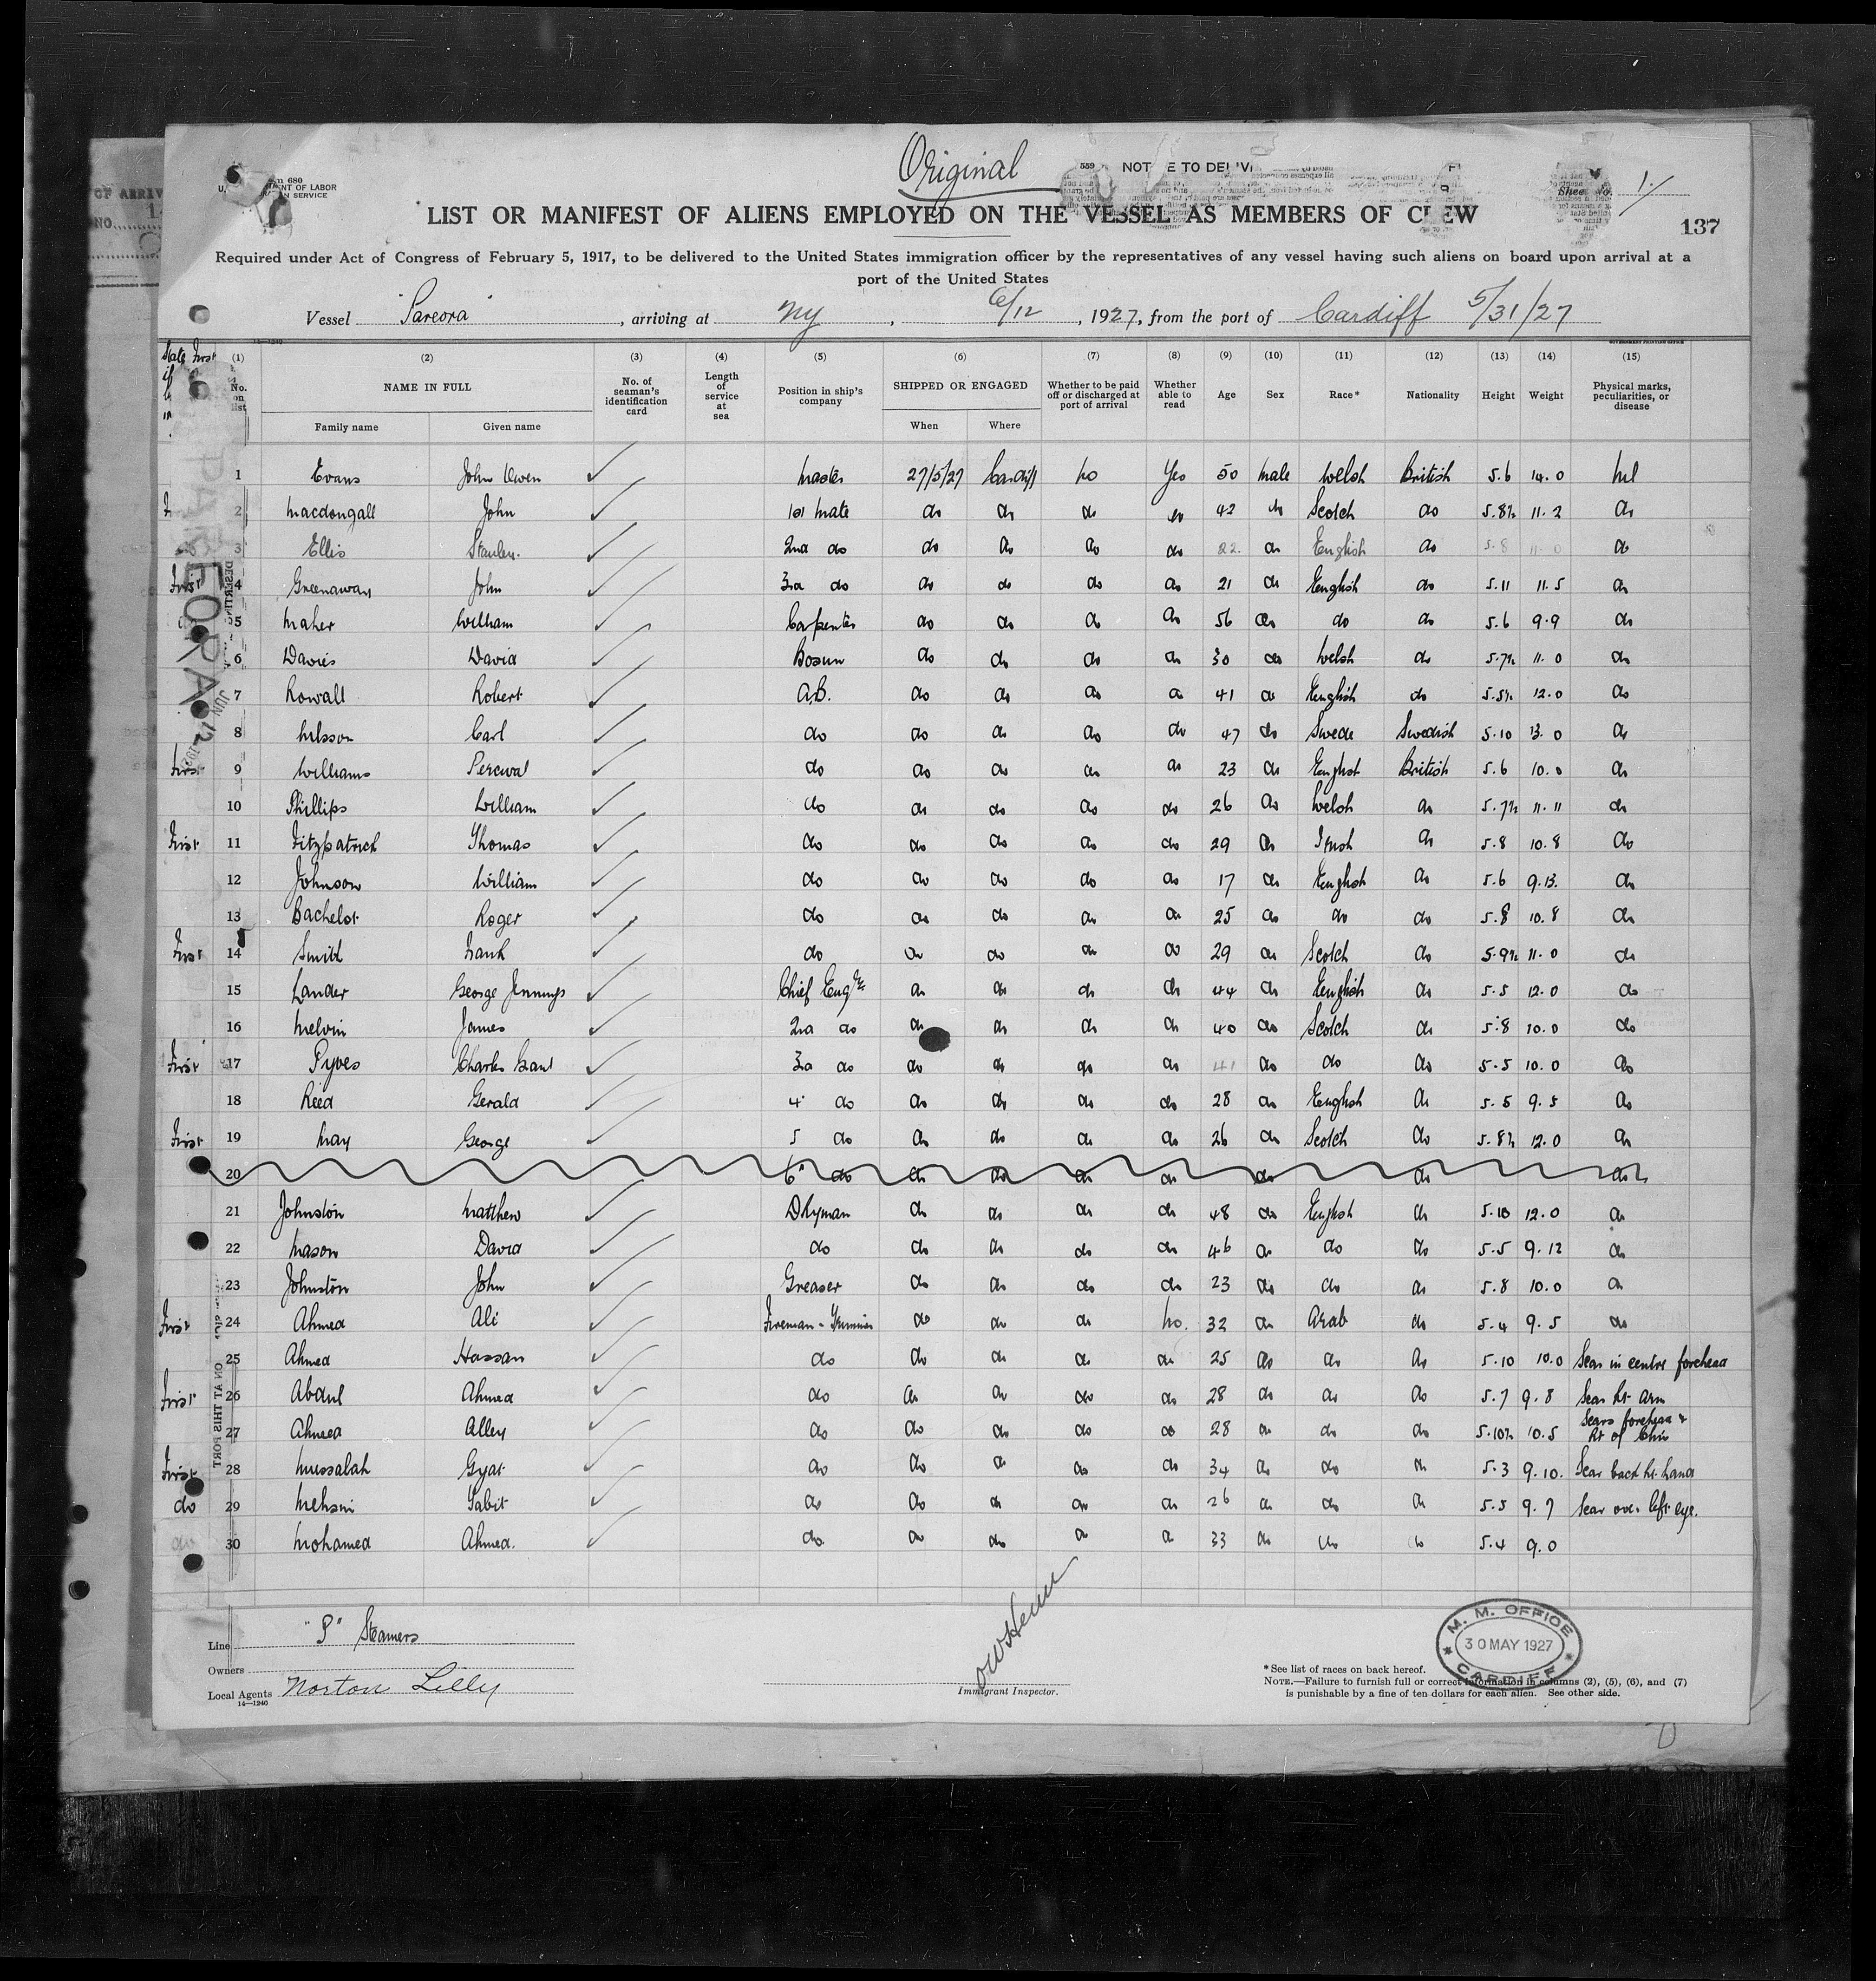 Original
LIST OR MANIFEST OF ALIENS EMPLOYED ON THE VESSEL AS MEMBERS OF CREW
137
Required under Act of Congress of February 5, 1917, to be delivered to the United States immigration officer by the representatives of any vessel having such aliens on board upon arrival at a
port of the United States
Vessel "Pareora", arriving at NY, 6/12, 1927, from the port of Cardiff 5/31/27
(1) (2) (3) (4) (5) (6) (7) (8) (9) (10) (11) (12) (13) (14) (15)
No. on list NAME IN FULL No. of seaman's identification card Length of service at sea Position in ship's company SHIPPED OR ENGAGED Whether to be paid off or discharged at port of arrival Whether able to read Age Sex Race* Nationality Height Weight Physical marks, peculiarities, or disease
Family name Given name When Where
1 Evans John Owen Master 27/5/27 Cardiff No Yes 50 Male Welsh British 5.6 14.0 Nil
2 Macdougall John 1st Mate do do do do 42 do Scotch do 5.8½ 11.2 do
3 Ellis Stanley 2nd do do do do do 22 do English do 5.8 11.0 do
First 4 Greenaway John 3rd do do do do do 21 do English do 5.11 11.5 do
5 Maher William Carpenter do do do do 56 do do do 5.6 9.9 do
6 Davies David Bosun do do do do 30 do Welsh do 5.7½ 11.0 do
7 Rowall Robert A.B. do do do do 41 do English do 5.5½ 12.0 do
8 Nilsson Carl do do do do do 47 do Swede Swedish 5.10 13.0 do
First 9 Williams Percival do do do do do 23 do English British 5.6 10.0 do
10 Phillips William do do do do do 26 do Welsh do 5.7½ 11.11 do
First 11 Fitzpatrick Thomas do do do do do 29 do Irish do 5.8 10.8 do
12 Johnson William do do do do do 17 do English do 5.6 9.13. do
13 Bachelor Roger do do do do do 25 do do do 5.8 10.8 do
First 14 Smith Frank do do do do do 29 do Scotch do 5.9½ 11.0 do
15 Lander George Jennings Chief Engr do do do do 44 do English do 5.5 12.0 do
16 Melvin James 2nd do do do do do 40 do Scotch do 5.8 10.0 do
First 17 Pyves Charles Grant 3rd do do do do do 41 do do do 5.5 10.0 do
18 Reed Gerald 4 do do do do do 28 do English do 5.5 9.5 do
First 19 May George 5 do do do do do 26 do Scotch do 5.8½ 12.0 do
20 6" do do do do do do do do
21 Johnston Matthew Dkyman do do do do 48 do English do 5.10 12.0 do
22 Mason David do do do do do 46 do do do 5.5 9.12 do
23 Johnston John Greaser do do do do 23 do do do 5.8 10.0 do
First 24 Ahmed Ali Fireman - Trimmer do do do No. 32 do Arab do 5.4 9.5 do
25 Ahmed Hassan do do do do do 25 do do do 5.10 10.0 Scar in centre forehead
First 26 Abdul Ahmed do do do do do 28 do do do 5.7 9.8 Scar Rt. arm
27 Ahmed Alley do do do do do 28 do do do 5.10½ 10.5 Scars forehead & Rt of Chin
First 28 Mussalah Gyat do do do do do 34 do do do 5.3 9.10. Scar back Rt. hand
do 29 Mehsin Sabit do do do do do 26 do do do 5.5 9.7 Scar over left eye.
do 30 Mohamed Ahmed. do do do do do 33 do do do 5.4 9.0
Line "P" Steamers
Owners
Local Agents Norton Lilly
14—1240
Immigrant Inspector.
M. M. OFFICE
30 MAY 1927
CARDIFF
*See list of races on back hereof.
NOTE.—Failure to furnish full or correct information in columns (2), (5), (6), and (7)
is punishable by a fine of ten dollars for each alien. See other side.